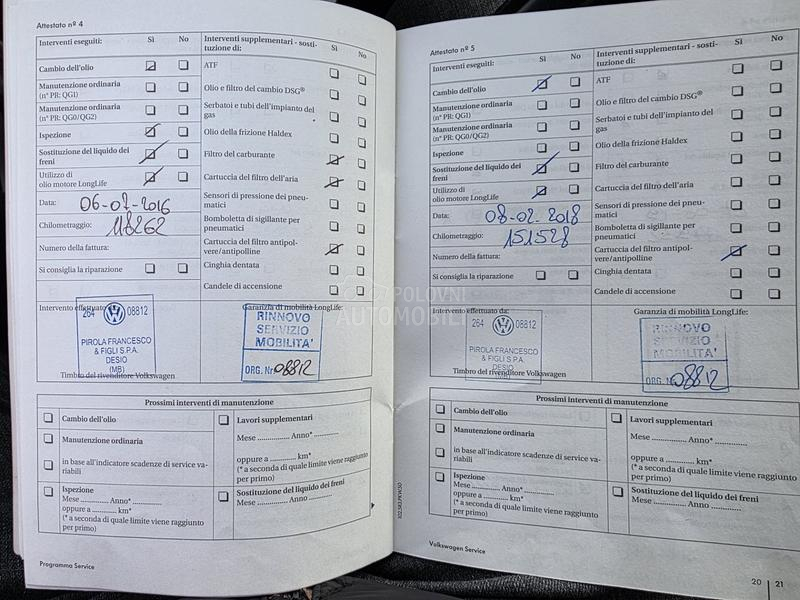 Attestato nº 4
Interventi eseguiti: Sì No
Cambio dell'olio
Manutenzione ordinaria
(n° PR: QG1)
Manutenzione ordinaria
(n° PR: QG0/QG2)
Ispezione
Sostituzione del liquido dei
freni
Utilizzo di
olio motore LongLife
Data: 06-07-2016
Chilometraggio: 118262
Numero della fattura:
Si consiglia la riparazione
Interventi supplementari - sosti-
tuzione di: Sì No
ATF
Olio e filtro del cambio DSG®
Serbatoi e tubi dell'impianto del
gas
Olio della frizione Haldex
Filtro del carburante
Cartuccia del filtro dell'aria
Sensori di pressione dei pneu-
matici
Bomboletta di sigillante per
pneumatici
Cartuccia del filtro antipol-
vere/antipolline
Cinghia dentata
Candele di accensione
Intervento effettuato
264 08812
PIROLA FRANCESCO
& FIGLI S.P.A.
DESIO
(MB)
Timbro del rivenditore Volkswagen
Garanzia di mobilità LongLife:
RINNOVO
SERVIZIO
MOBILITA'
ORG. Nr. 08812
Prossimi interventi di manutenzione
Cambio dell'olio
Manutenzione ordinaria
in base all'indicatore scadenze di service va-
riabili
Ispezione
Mese ............ Anno* ............
oppure a ............ km*
(* a seconda di quale limite viene raggiunto
per primo)
Lavori supplementari
Mese ............ Anno* ............
oppure a ............ km*
(* a seconda di quale limite viene raggiunto
per primo)
Sostituzione del liquido dei freni
Mese ............ Anno ............
Programma Service
Attestato nº 5
Interventi eseguiti: Sì No
Cambio dell'olio
Manutenzione ordinaria
(n° PR: QG1)
Manutenzione ordinaria
(n° PR: QG0/QG2)
Ispezione
Sostituzione del liquido dei
freni
Utilizzo di
olio motore LongLife
Data: 08-02-2018
Chilometraggio: 151528
Numero della fattura:
Si consiglia la riparazione
Interventi supplementari - sosti-
tuzione di: Sì No
ATF
Olio e filtro del cambio DSG®
Serbatoi e tubi dell'impianto del
gas
Olio della frizione Haldex
Filtro del carburante
Cartuccia del filtro dell'aria
Sensori di pressione dei pneu-
matici
Bomboletta di sigillante per
pneumatici
Cartuccia del filtro antipol-
vere/antipolline
Cinghia dentata
Candele di accensione
Intervento effettuato da:
264 08812
PIROLA FRANCESCO
& FIGLI S.P.A.
DESIO
(MB)
Timbro del rivenditore Volkswagen
Garanzia di mobilità LongLife:
RINNOVO
SERVIZIO
MOBILITA'
ORG. Nr. 08812
Prossimi interventi di manutenzione
Cambio dell'olio
Manutenzione ordinaria
in base all'indicatore scadenze di service va-
riabili
Ispezione
Mese ............ Anno* ............
oppure a ............ km*
(* a seconda di quale limite viene raggiunto
per primo)
Lavori supplementari
Mese ............ Anno* ............
oppure a ............ km*
(* a seconda di quale limite viene raggiunto
per primo)
Sostituzione del liquido dei freni
Mese ............ Anno ............
Volkswagen Service
20 | 21
POLOVNI
AUTOMOBILI